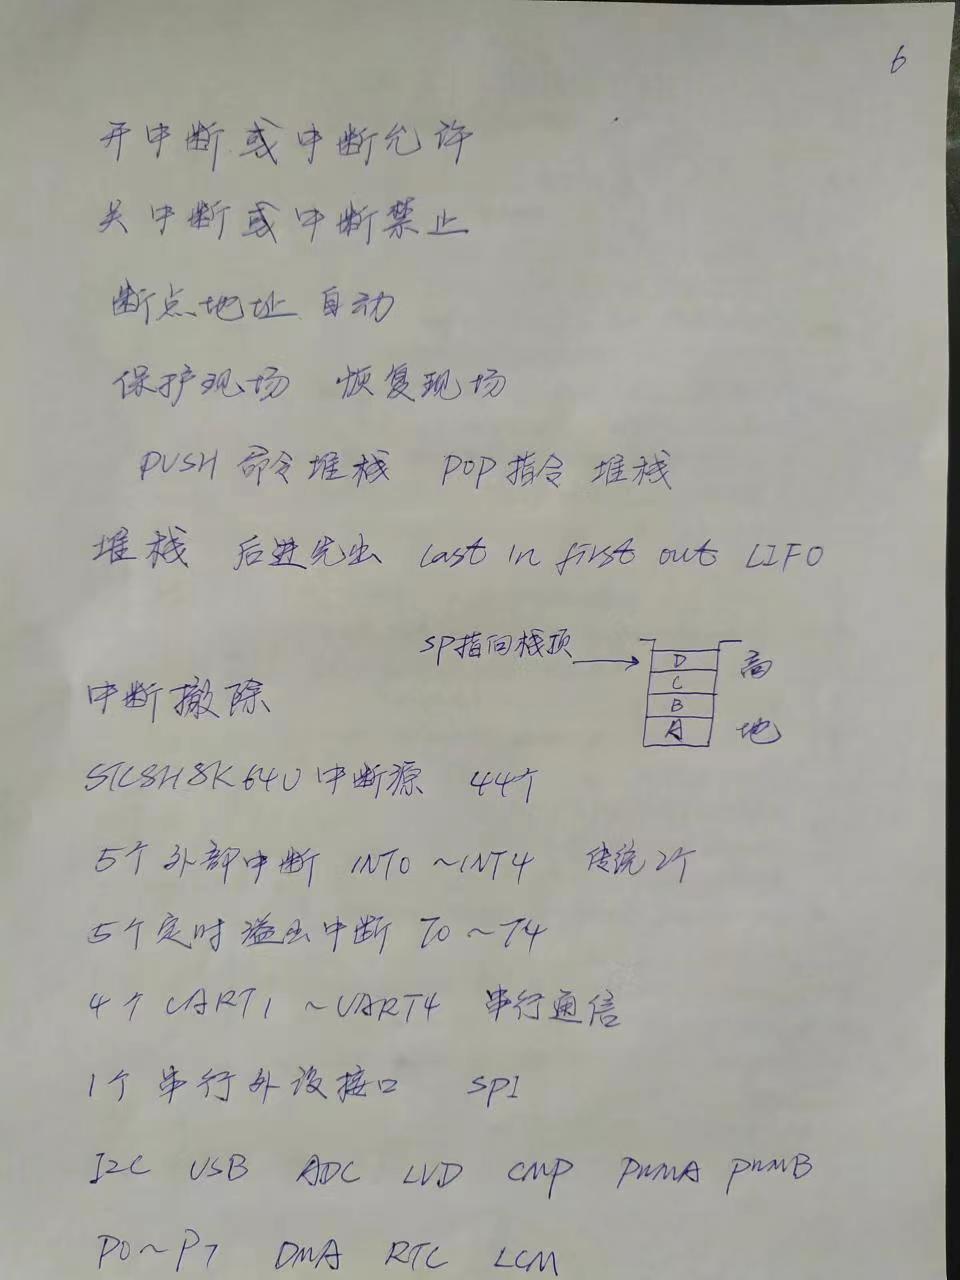 6
开中断或中断允许
关中断或中断禁止
断点地址 自动
保护现场 恢复现场
PUSH 命令堆栈 POP指令 堆栈
堆栈 后进先出 Last in first out LIFO
SP指向栈顶
D 高
C
B
A 地
中断撤除
STC8H8K64U中断源 44个
5个外部中断 INT0～INT4 传统2个
5个定时溢出中断 T0～T4
4个UART1～UART4 串行通信
1个串行外设接口 SPI
I2C USB ADC LVD CMP PWMA PWMB
P0～P7 DMA RTC LCM